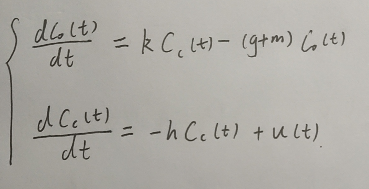 dC₀(t)/dt = k C_c(t) - (g+m) C₀(t)
dC_c(t)/dt = -h C_c(t) + u(t)